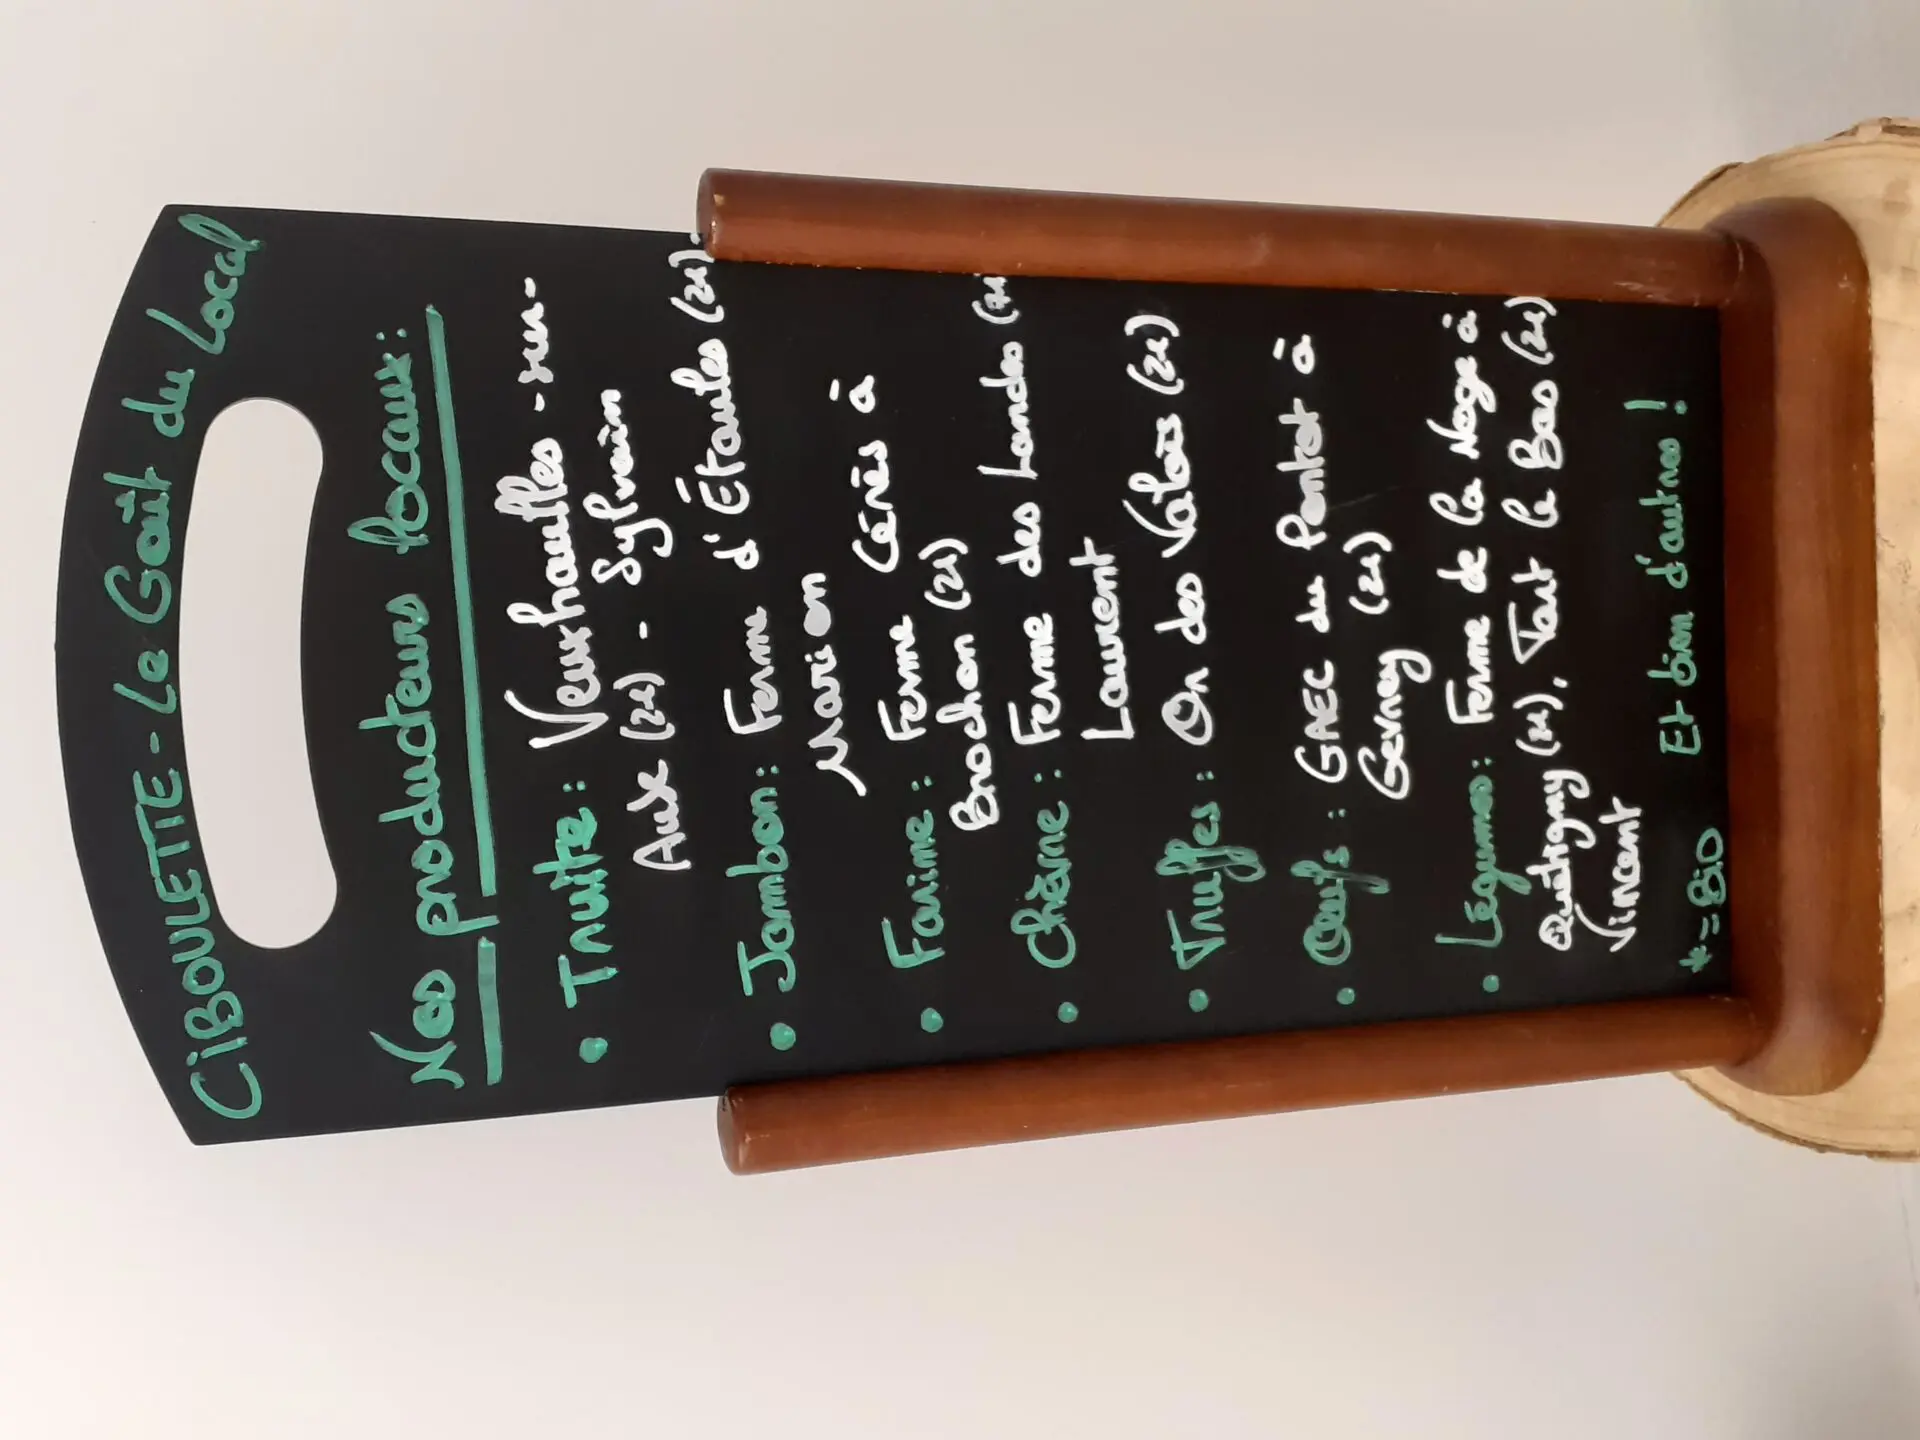 CIBOULETTE - Le Goût du Local
Nos producteurs locaux:
• Truite: Veuxhaulles-sur-
Aux (21) - Sylvain
• Jambon: Ferme d'Étaules (21).
Marion
• Farine: Ferme Cérès à
Brochon (21)
• Chèvre: Ferme des Landes
Laurent
• Truffes: Or des Valois (21)
• Oeufs: GAEC du Pontot à
Gevrey (21)
• Légumes: Ferme de la Noge à
Quétigny (21), Tart le Bas (21)
Vincent
* = BIO Et bien d'autres!